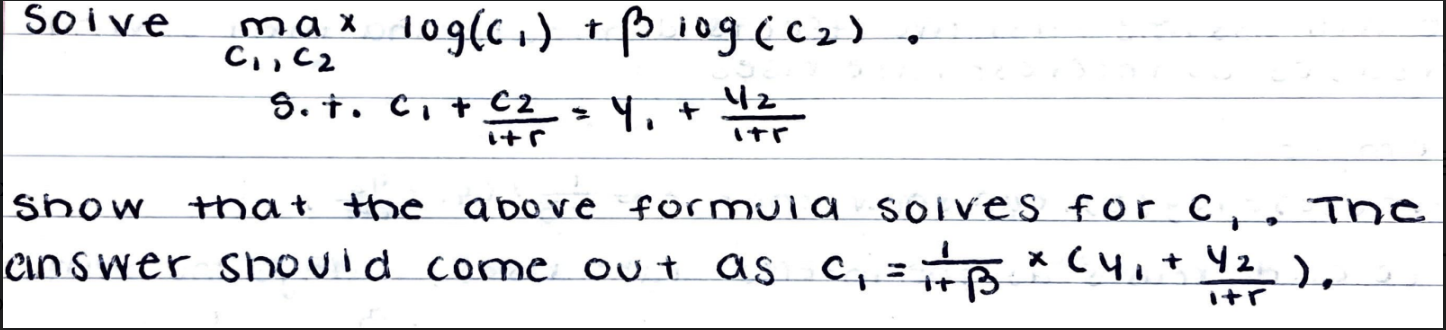 Solve max log(c₁) + β log(c₂).
c₁, c₂
s.t. c₁ + c₂/1+r = y₁ + y₂/1+r
show that the above formula solves for c₁. The
answer should come out as c₁ = 1/1+β × (y₁ + y₂/1+r).